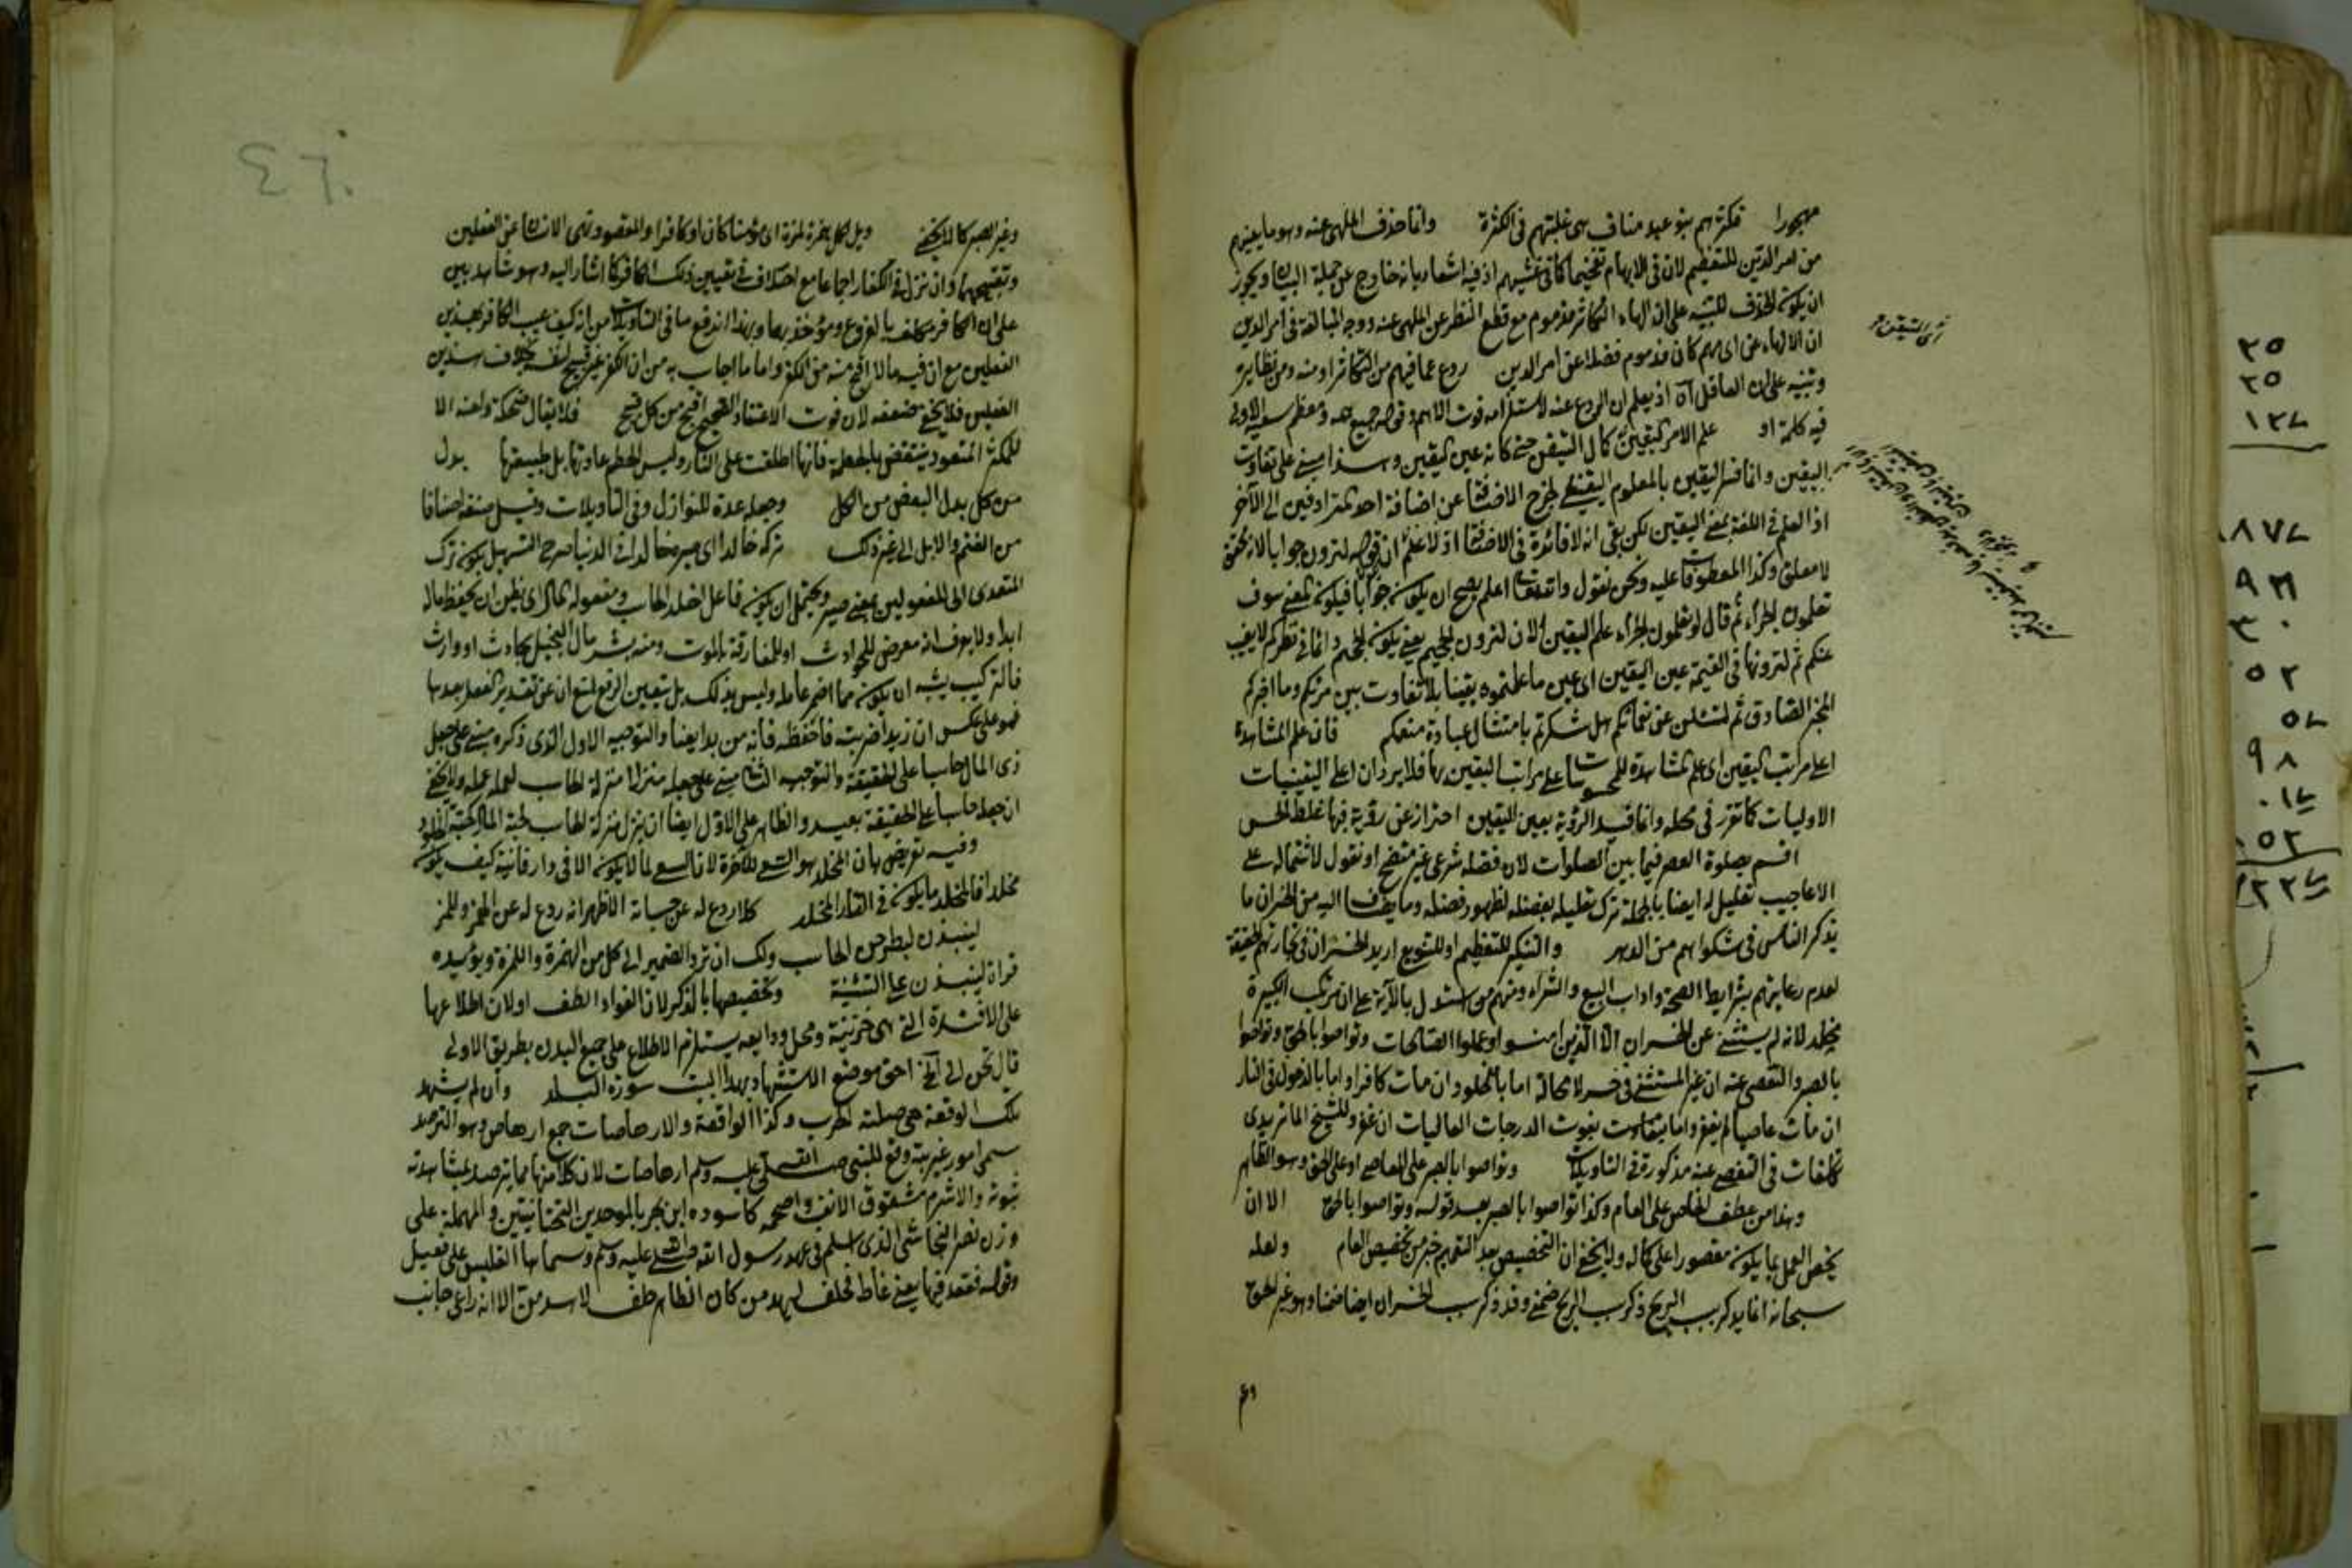 مهجورا فكثرهم بنو عبد مناف بمعنى غلبتهم في الكثرة وانما حذف الملهى عنه وهو ما يعنيهم
من امر الدين للتعظيم لان في الابهام تفخيما كما في غشيهم اذ فيه اشعار بانه خارج عن حيطة البيان ويجوز
ان يكون الحذف للتنبيه على ان الهاء التكاثر مذموم مع قطع النظر عن الملهى عنه ووجه المبالغة في امر الدين
ان الالهاء عن اي مهم كان مذموم فضلا عن امر الدين ردع عما فيهم من التكاثر او منه ومن نظايره
وتنبيه على ان العاقل آه اذ يعلم ان الردع عنه لاستلزامه فوت الاهم وقوله جميع همه ومعظم سعيه الاولى
فيه كلمة او علم الامر اليقين كمال التيقن حتى كانه عين اليقين وهذا مبني على تفاوت
اليقين وانما فسر اليقين بالمعلوم اليقيني ليخرج الاضافة عن اضافة احد المترادفين الى الآخر
اذ العلم في اللغة بمعنى اليقين لكن بقي انه لا فائدة في الاضافة اذ لا علم ان قوله لترون جوابا لان محقق
لا معلق وكذا المعطوفات عليه ونحن نقول والله تعالى اعلم يصح ان يكون جوابا فيكون المعنى سوف
تعلمون الجزاء ثم قال لو تعلمون الجزاء علم اليقين الان لترون الجحيم يعني يكون الجحيم دائما في نظركم لا يغيب
عنكم ثم لترونها في القيمة عين اليقين اي عين ما علمتموه يقينا بلا تفاوت بين مرئكم وما اخبركم
المخبر الصادق ثم لتسئلن عن نعمائكم هل شكرتم بامتثال عبادة منعمكم فان علم المشاهدة
اعلى مراتب اليقين اي علم المشاهدة للمحسوسات اعلى مراتب اليقين بها فلا يرد ان اعلى اليقينيات
الاوليات كما تقرر في محله وانما قيد الرؤية بعين اليقين احتراز عن رؤية فيها غلط الحس
اقسم بصلوة العصر فيما بين الصلوات لان فضله شرعي غير متضح او نقول لاشتماله على
الاعاجيب تعليل له ايضا بالجملة ترك تعليله بفضله لظهور فضله وما يضاف اليه من الخسران ما
يذكر الناس في شكواهم من الدهر والتنكير للتعظيم او للتنويع اريد الخسران في تجارتهم الحقيقة
لعدم رعايتهم بشرايط الصحة واداب البيع والشراء ومنهم من استدل بالآية على ان مرتكب الكبيرة
يخلد لانه لم يستثنى عن الخسران الا الذين امنوا وعملوا الصالحات وتواصوا بالحق وتواصوا
بالصبر والتقصي عنه ان غير المستثنى في خسر لا محالة اما بالخلود ان مات كافرا واما بالدخول في النار
ان مات عاصيا لم يغفر واما بتفاوت بفوت الدرجات العاليات ان غفر وللشيخ الماتريدي
تكلفات في التفصي عنه مذكورة في التاويلات وتواصوا بالصبر على المعاصي او على الحق وهو الظاهر
وهذا من عطف الخاص على العام وكذا تواصوا بالصبر بعد قوله وتواصوا بالحق الا ان
يخص العمل بما يكون مقصورا على كماله ولا يخفى ان التخصيص بعد التعميم خير من تخصيص العام ولعله
سبحانه انما يذكر سبب الربح ذكر سبب الربح ضمنى وقد ذكر سبب الخسران ايضا ضمنا وهو غير الحق
وغير
اي التيقن
٤٦٠
وغير الصبر كما لا يخفى ويل لكل همزة لمزة اي مؤمنا كان او كافرا والمقصود نهى الانسان عن الفعلين
وتقبيحهما وان نزل في الكفار اجماعا مع اختلاف في تعيين ذلك الكافر كما اشار اليه وهو شاهد بين
على ان الكافر مكلف بالفروع ومؤاخذ بها وبهذا اندفع ما في التاويلات من انه كيف عيب الكافر بهذين
الفعلين مع ان فيه ما لا اقبح منه من الكفر واما ما اجاب به من ان الكفر غير قبيح لنفسه بخلاف هذين
الفعلين فلا يخفى ضعفه لان فوت الاعتقاد الصحيح اقبح من كل قبيح فلا يقال ضحكة ولعنة الا
للمكثر المتعود ينتقض بالحطمة فانها اطلقت على النار وليس الحطم عادتها بل طبيعتها بدل
من كل بدل البعض من الكل وجعله عدة للنوازل وفي التاويلات وقيل صنفه اصنافا
من الغنم والابل الى غير ذلك تركه خالدا اي صيره خالدا في الدنيا صرح التسهيل بكون ترك
المتعدي الى المفعولين بمعنى صير ويحتمل ان يكون فاعل اخلد الحاسب ومفعوله المال اي يظن ان يحفظ ماله
ابدا ولا يعرف انه معرض للحوادث او للمفارقة بالموت ومنه بشر مال البخيل بحادث او وارث
فالتركيب يشبه ان يكون مما اضمر عامله وليس بذلك بل يتعين الرفع لمنع ان عن تقدير الفعل بعدها
فهو على عكس ان زيدا ضربته فاحفظه فانه من بدايعنا والتوجيه الاول الذي ذكره مبني على جعل
ذي المال حاسبا على الحقيقة والتوجيه الثاني مبني على جعله منزلا منزلة الحاسب لعمله عمله ولا يخفى
ان جعله حاسبا على الحقيقة بعيد والظاهر على الاول ايضا ان ينزل منزلة الحاسب لحبه المال كمحبة الخلود
وفيه تعريض بان المخلد هو السعي للآخرة لان السعي لما لا يكون الا في دار فانية كيف يكون
مخلدا فالمخلد ما يكون في الدار المخلد كلا ردع له عن حسبانه الاظهر انه ردع له عن الهمز واللمز
لينبذن ليطرحن الحاسب ولك ان ترد الضمير الى كل من الهمزة واللمزة ويؤيده
قراءة لينبذان على التثنية وتخصيصها بالذكر لان الفؤاد الطف او لان اطلاعها
على الافئدة التي هي خزينته ومحل ودايعه يستلزم الاطلاع على جميع البدن بطريق الاولى
قال تحن الى آخره احق موضع الاستشهاد بهذا البيت سورة البلد وان لم يشهد
تلك الوقعة هي صلته الحرب وكذا الواقعة والارهاصات جمع ارهاص وهو الترصد
سمى امور غريبة وقع للنبي صلى الله تعالى عليه وسلم ارهاصات لان كلا منها مما يترصد بمشاهدته
نبوته والاشرم مشقوق الانف واصحمه كاسوده ابن بحر بالموحدين التحتانيتين والمهملة على
وزن نصر النجاشي الذي اسلم في عهد رسول الله صلى الله عليه وسلم وسماها القليس على فعيل
وقوله فقعد فيها يعني غاط فحلف ليهدمن كان الظاهر حلف لاهدمن الا انه راعى جانب